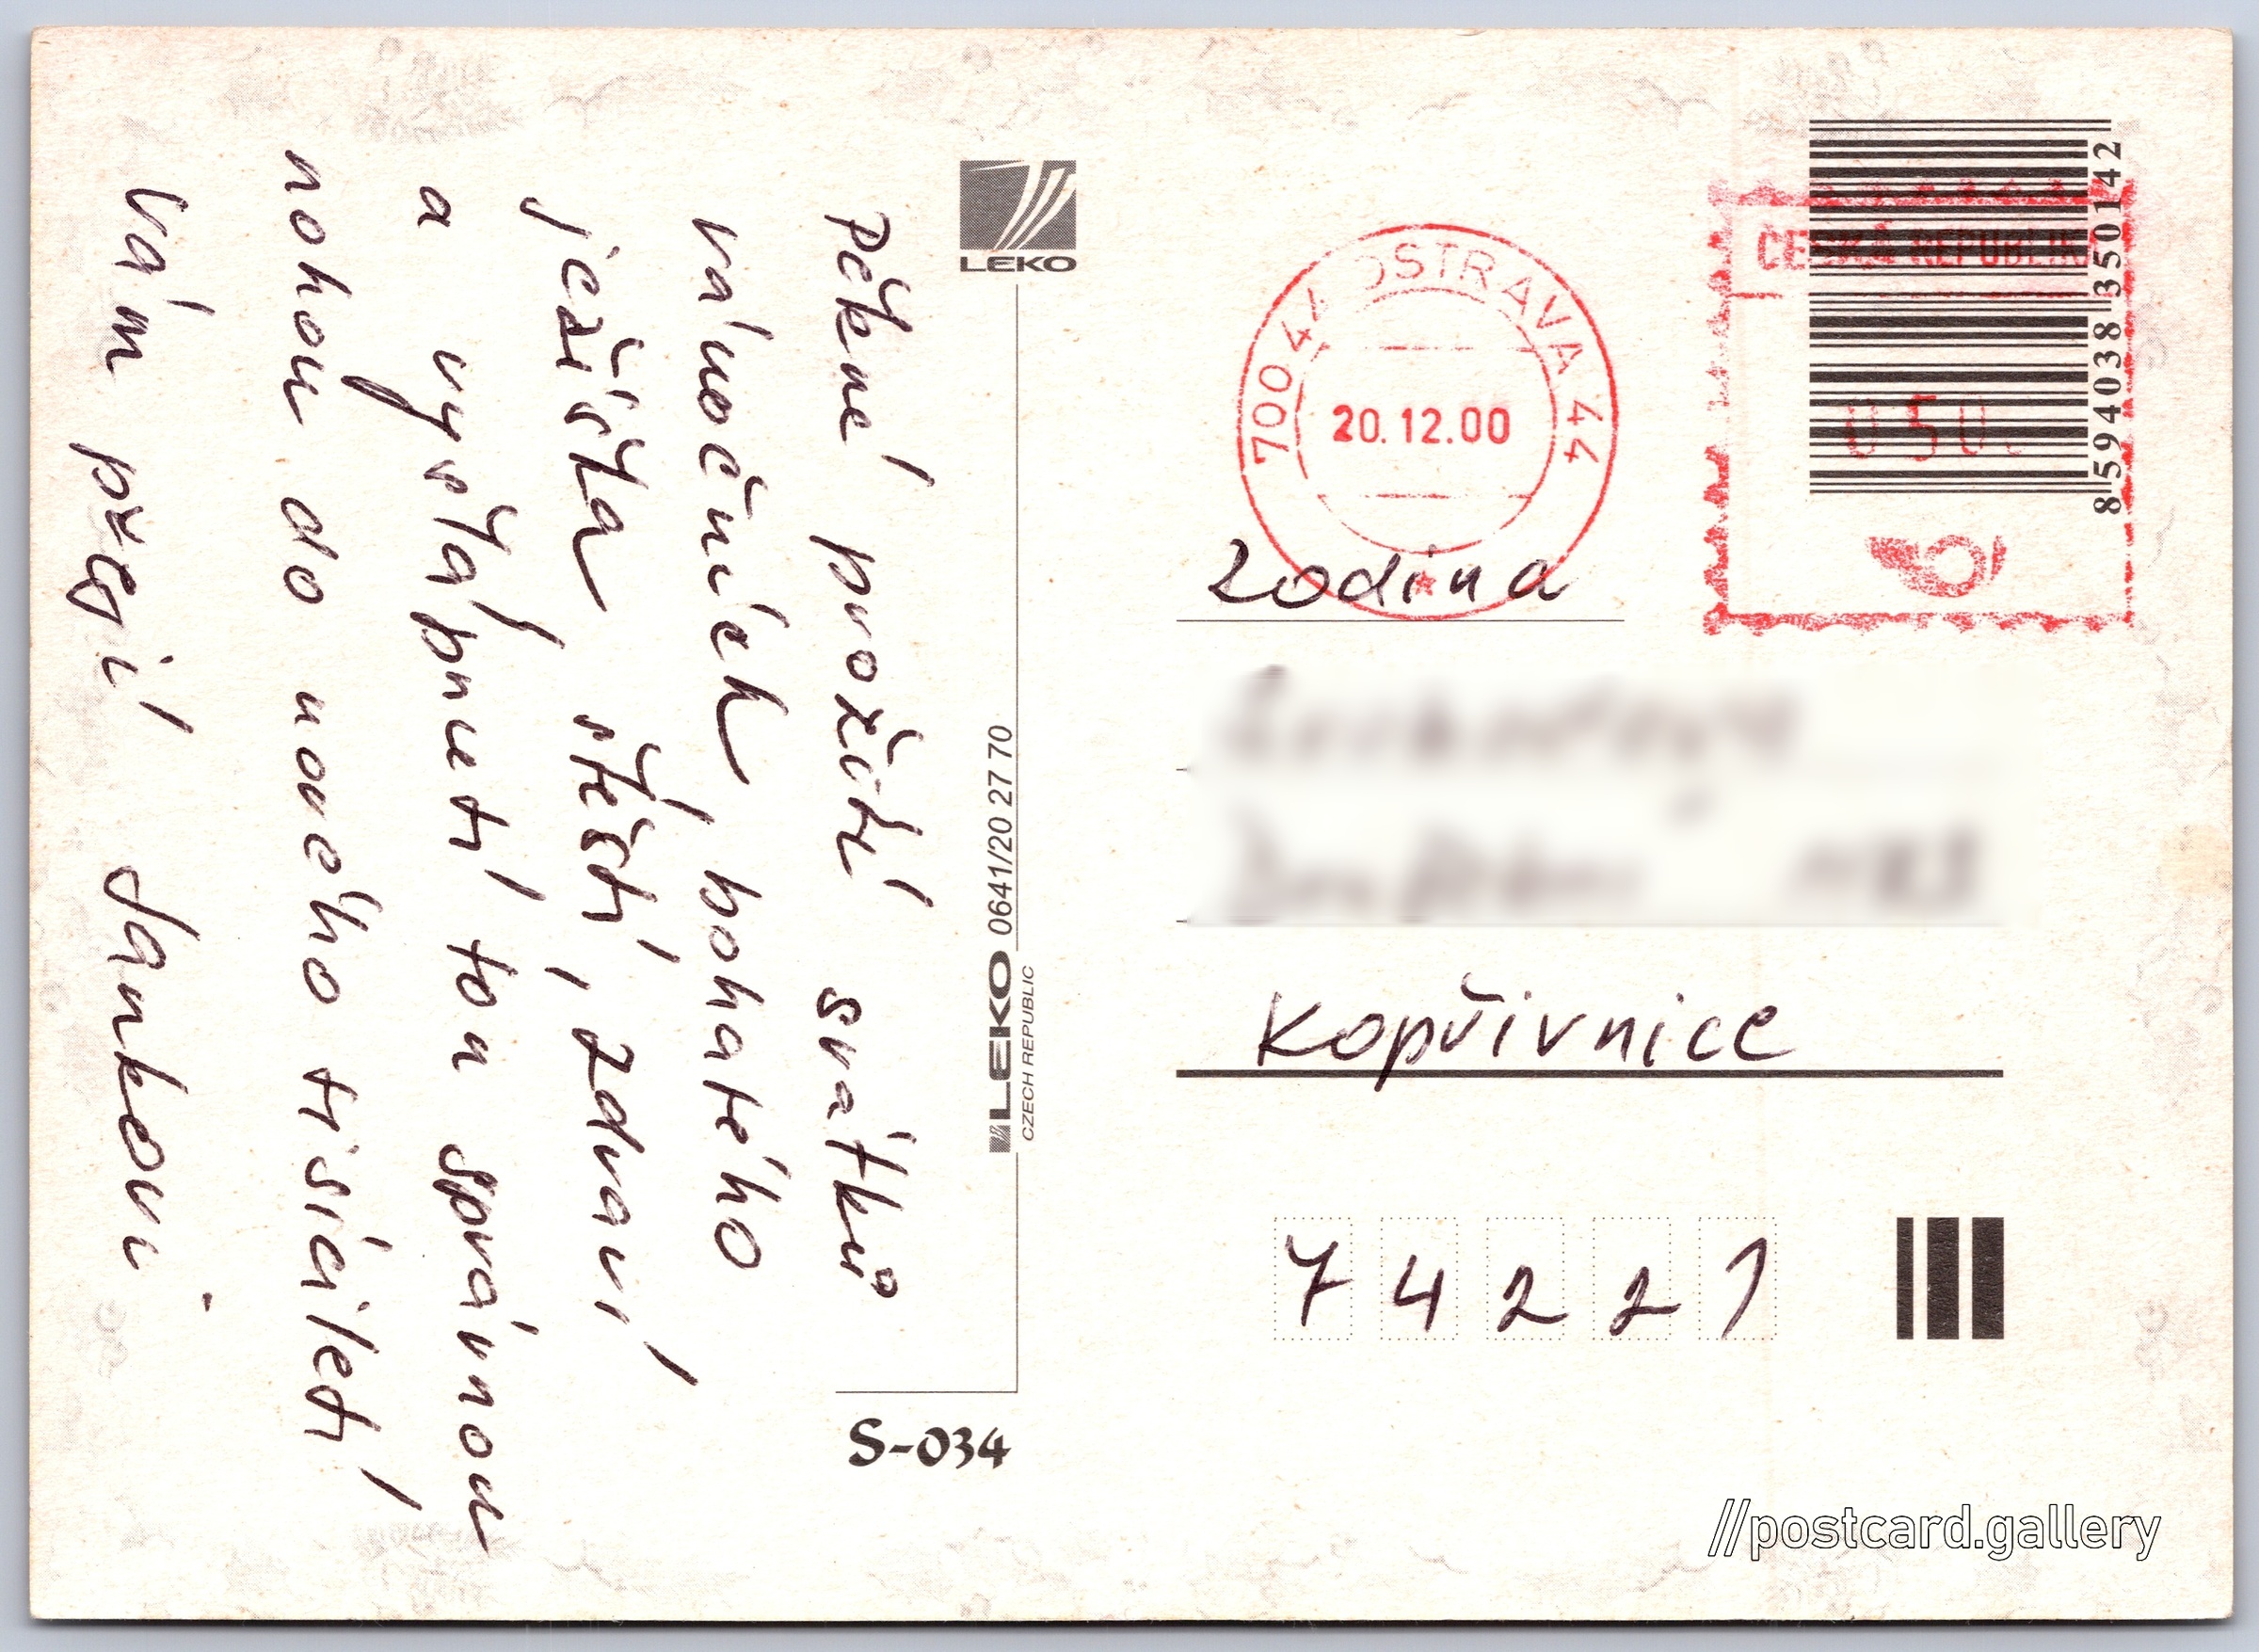 Pěkné prožití svátků
vánočních bohatého
ježíška štěstí, zdraví
a vyšťápnetí tou správnou
nohou do nového tisíciletí
Vám přejí Jankovi.
LEKO
LEKO 0641/20 27 70
CZECH REPUBLIC
S-034
700 44 OSTRAVA 44
20.12.00
ČESKÁ REPUBLIKA
050
8 594038 350142
rodina
Kopřivnice
74221
//postcard.gallery